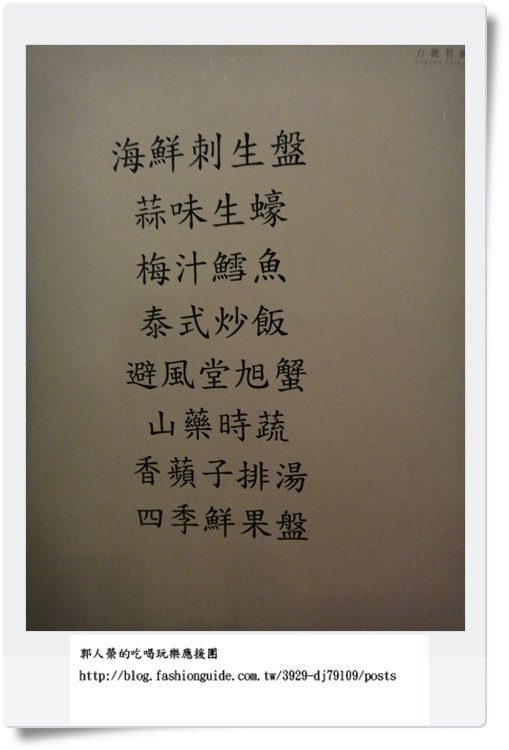 海鮮刺生盤
蒜味生蠔
梅汁鱈魚
泰式炒飯
避風堂旭蟹
山藥時蔬
香蘋子排湯
四季鮮果盤
郭人榮的吃喝玩樂應援團
http://blog.fashionguide.com.tw/3929-dj79109/posts